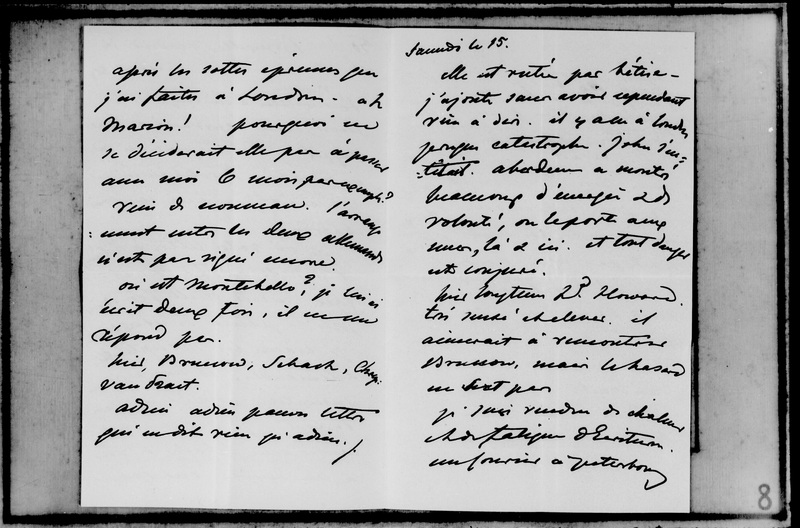 après les sottes épreuves que
j'ai faites à Londres. ah
Marion! pourquoi ne
se déciderait elle pas à passer
avec moi 6 mois par exemple?
rien de nouveau. l'arrange
-ment entre les deux allemands
n'est pas signé encore.
où est Montebello? je lui ai
écrit deux fois, il ne me
répond pas.
hier, Brunnow, Schach,
van Straat.
adieu adieu pauvre lettre
qui ne dit rien qu'adieu.
Samedi le 15.
elle est retirée par bêtise -
j'ajoute sans avoir cependant
rien à dire. il y a eu à Londres
presque catastrophe. John s'en-
-têtait. aberdeen a montré
beaucoup d'énergie & de
volonté, on le porte aux
nues, là & ici. et tout danger
est conjuré.
hier longtems Ld Howard.
très sensé & éclairé. il
aimerait à rencontrer
Brunnow, mais le hasard
ne sert pas
je suis rendue de chaleur
et de fatigue d'Ecriture.
un courrier à petersbourg
8